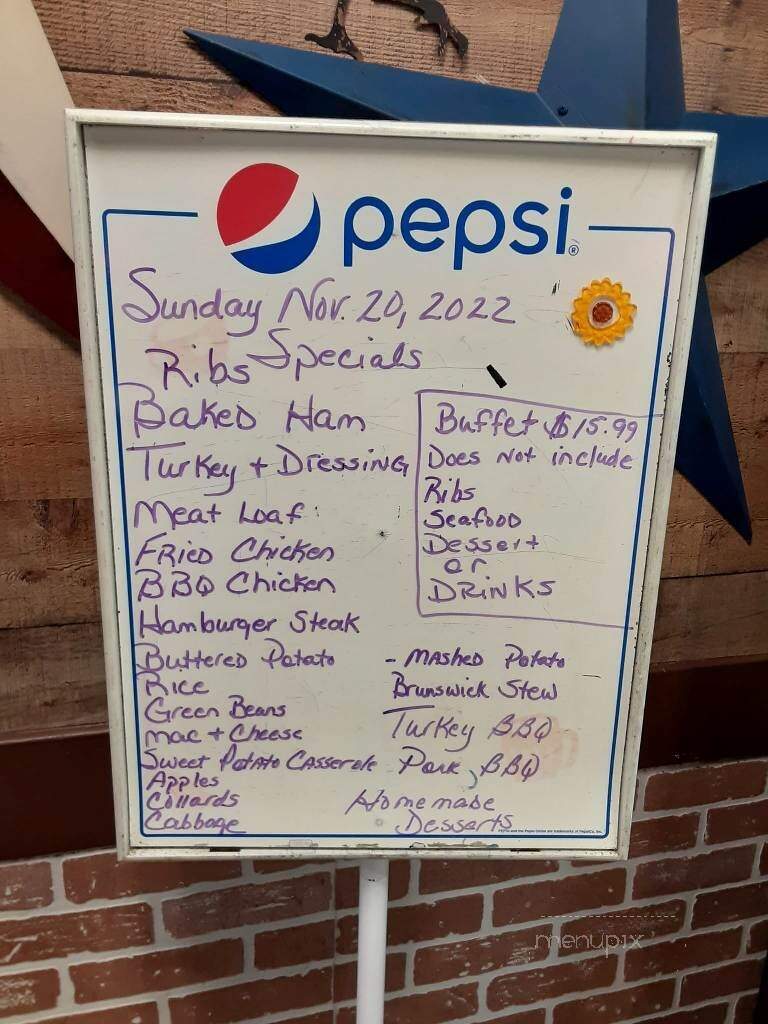 pepsi®
Sunday Nov. 20, 2022
Specials
Ribs
Baked Ham
Turkey + Dressing
Meat Loaf
Fried Chicken
BBQ Chicken
Hamburger Steak
Buttered Potato
Rice
Green Beans
Mac + Cheese
Sweet Potato Casserole
Apples
Collards
Cabbage
Buffet $15.99
Does Not include
Ribs
Seafood
Dessert
or
DRINKS
- MASHED Potato
Brunswick Stew
Turkey BBQ
Pork BBQ
Homemade
Desserts
menupix